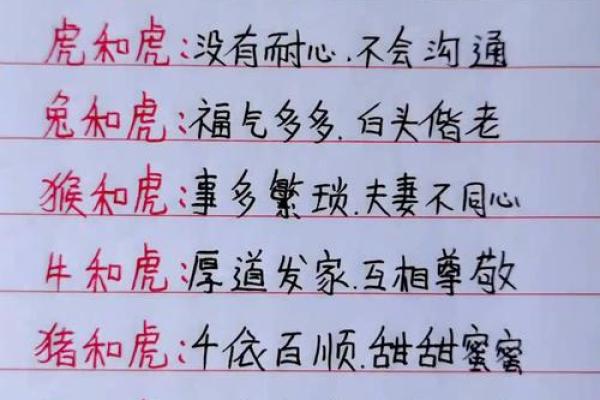 虎和虎:没有耐心.不会沟通
兔和虎:福气多多.白头偕老
猴和虎:事多繁琐.夫妻不同心
牛和虎:厚道发家.互相尊敬
猪和虎:千依百顺.甜甜蜜蜜